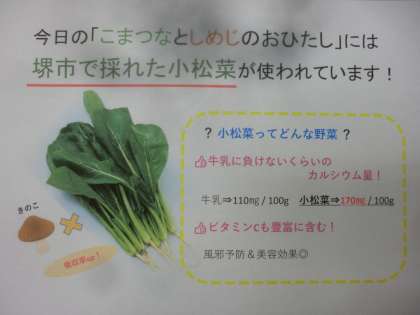 今日の「こまつなとしめじのおひたし」には
堺市で採れた小松菜が使われています！
？ 小松菜ってどんな野菜 ？
牛乳に負けないくらいの
カルシウム量！
牛乳⇒110㎎ / 100g 小松菜⇒170㎎ / 100g
ビタミンCも豊富に含む！
風邪予防＆美容効果◎
きのこ
吸収率up！